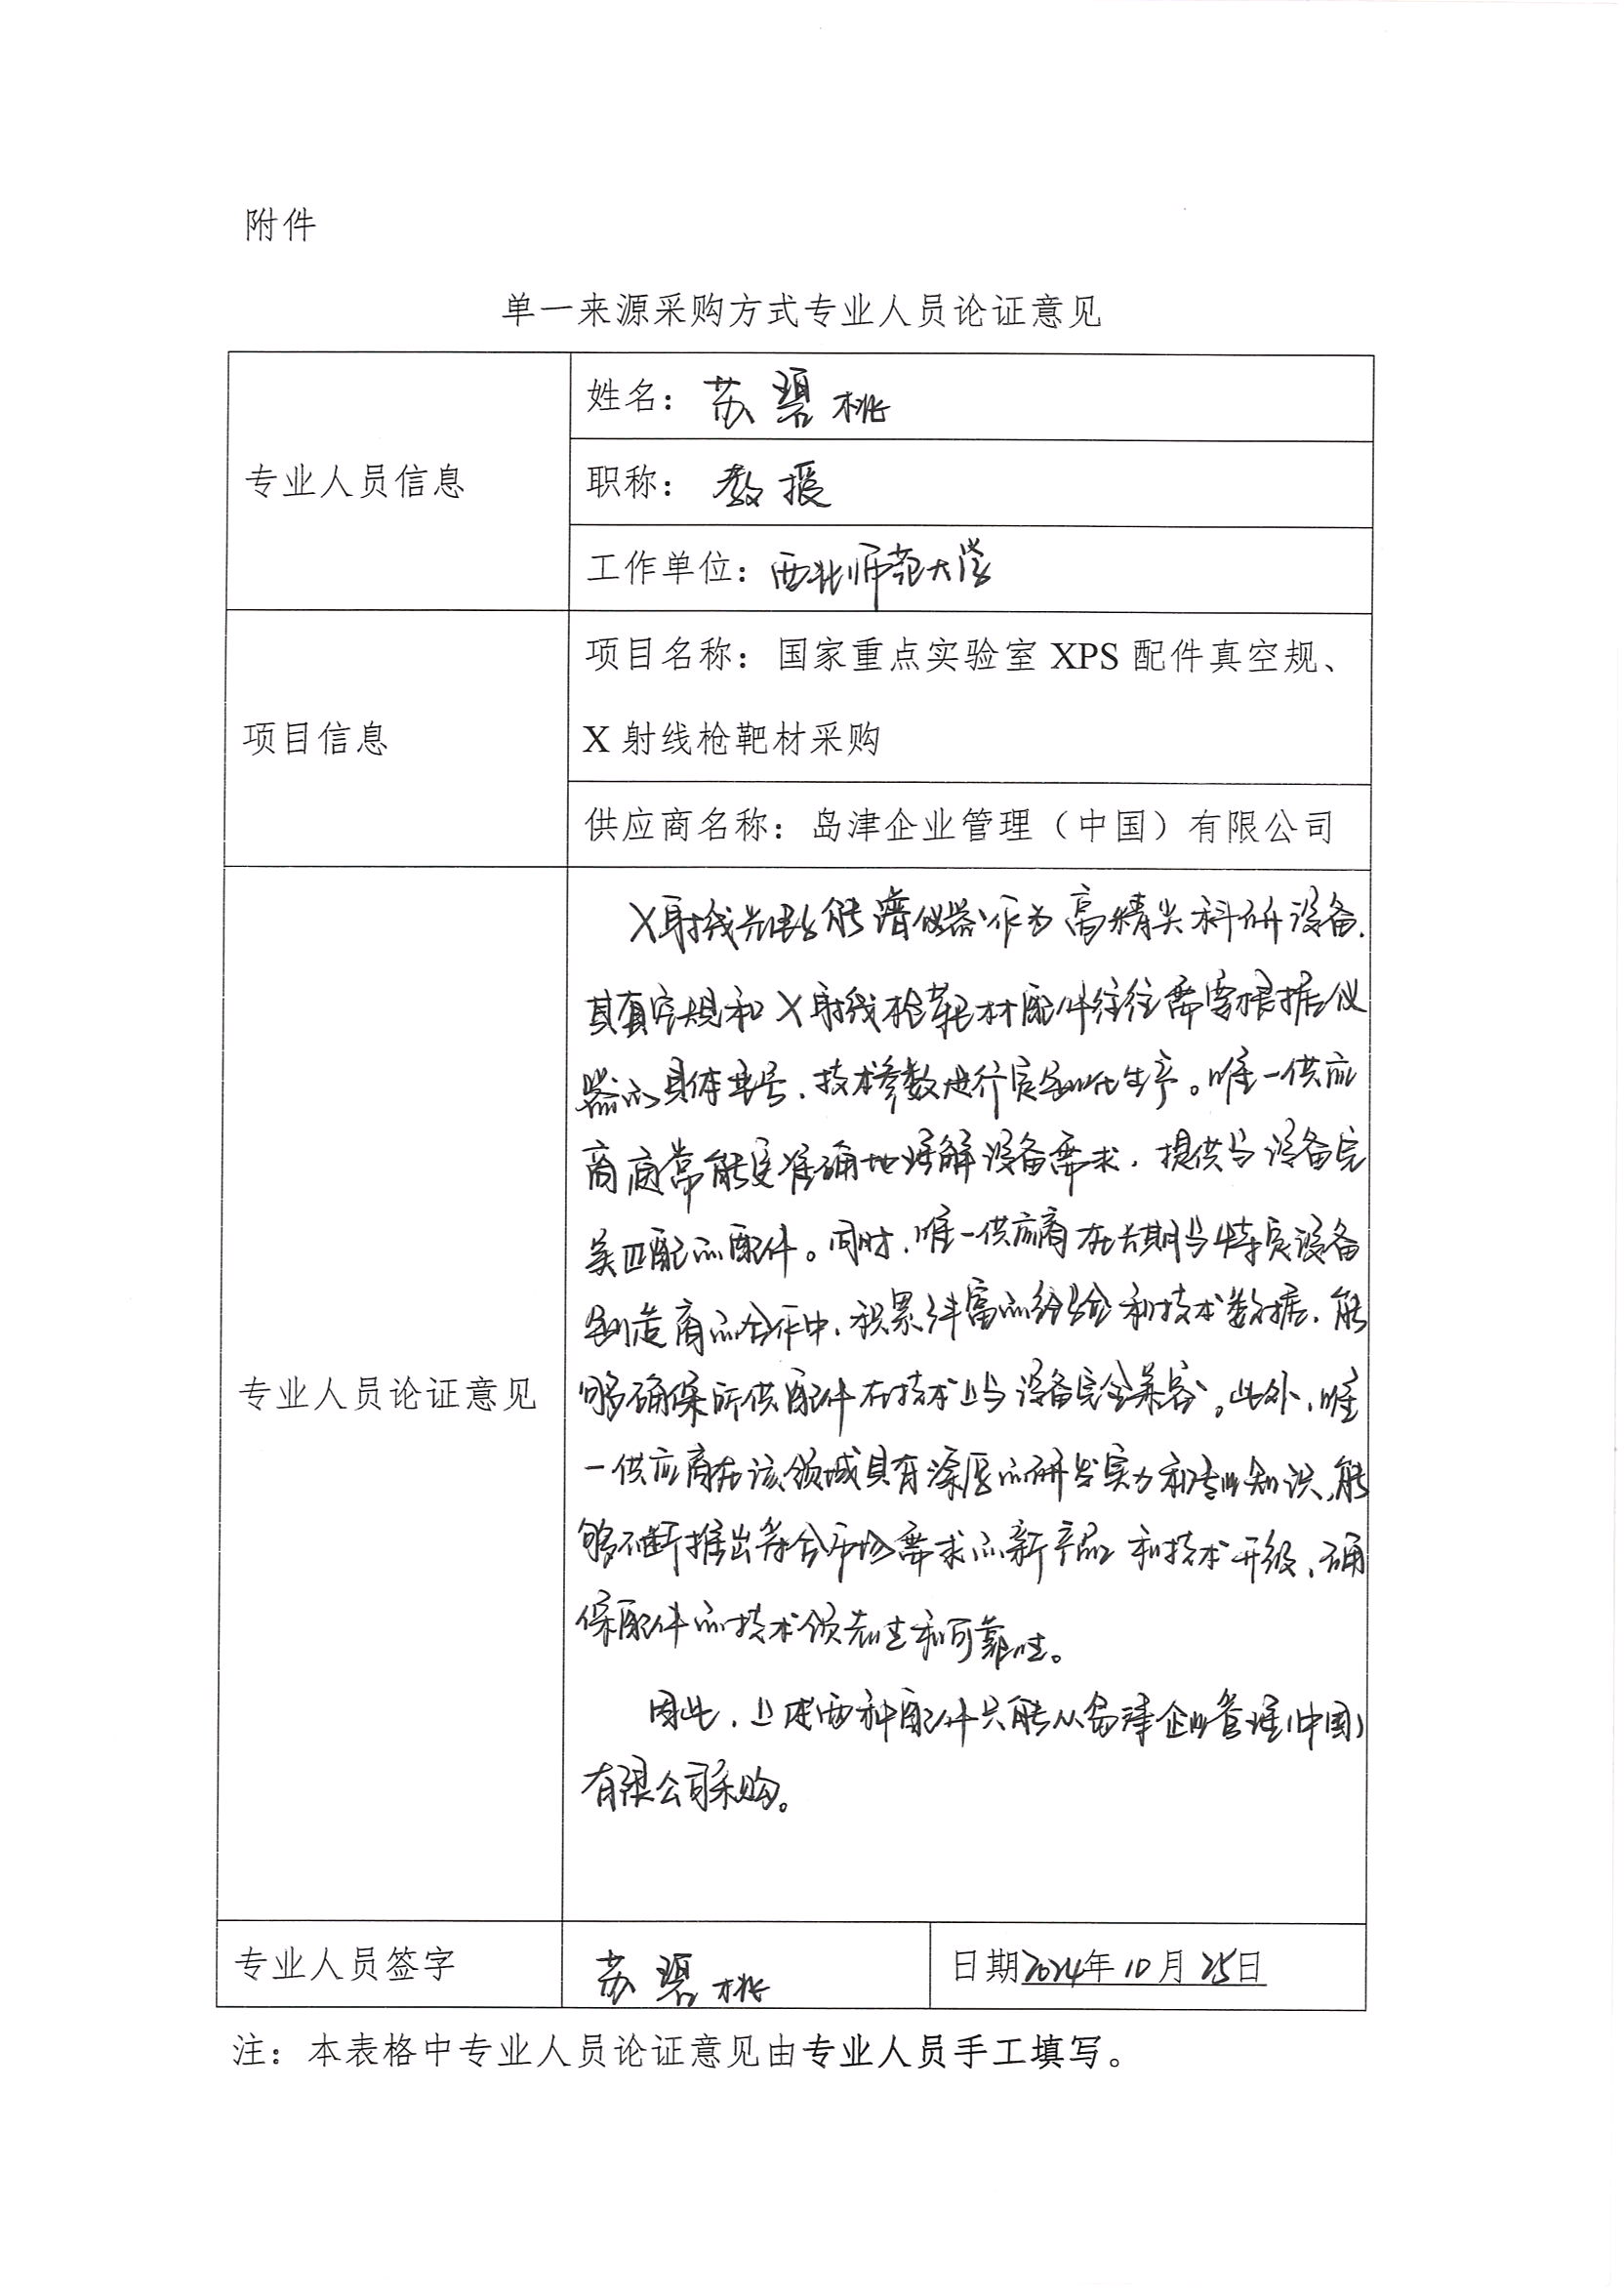 附件
单一来源采购方式专业人员论证意见
专业人员信息
姓名：苏碧桃
职称：教授
工作单位：西北师范大学
项目信息
项目名称：国家重点实验室 XPS 配件真空规、
X 射线枪靶材采购
供应商名称：岛津企业管理（中国）有限公司
专业人员论证意见
X射线光电子能谱仪器作为高精尖科研设备，
其真空规和X射线枪靶材配件往往需要根据仪
器的具体型号、技术参数进行定制化生产。唯一供应
商通常能更准确地理解设备需求，提供与设备完
美匹配的配件。同时，唯一供应商在长期与特定设备
制造商的合作中，积累丰富的经验和技术数据，能
够确保所供配件在技术上与设备完全兼容。此外，唯
一供应商在该领域具有深厚的研发实力和专业知识，能
够不断推出符合市场需求的新产品和技术升级，确
保配件的技术领先性和可靠性。
因此，上述两种配件只能从岛津企业管理（中国）
有限公司采购。
专业人员签字
苏碧桃
日期2024年10月25日
注：本表格中专业人员论证意见由专业人员手工填写。